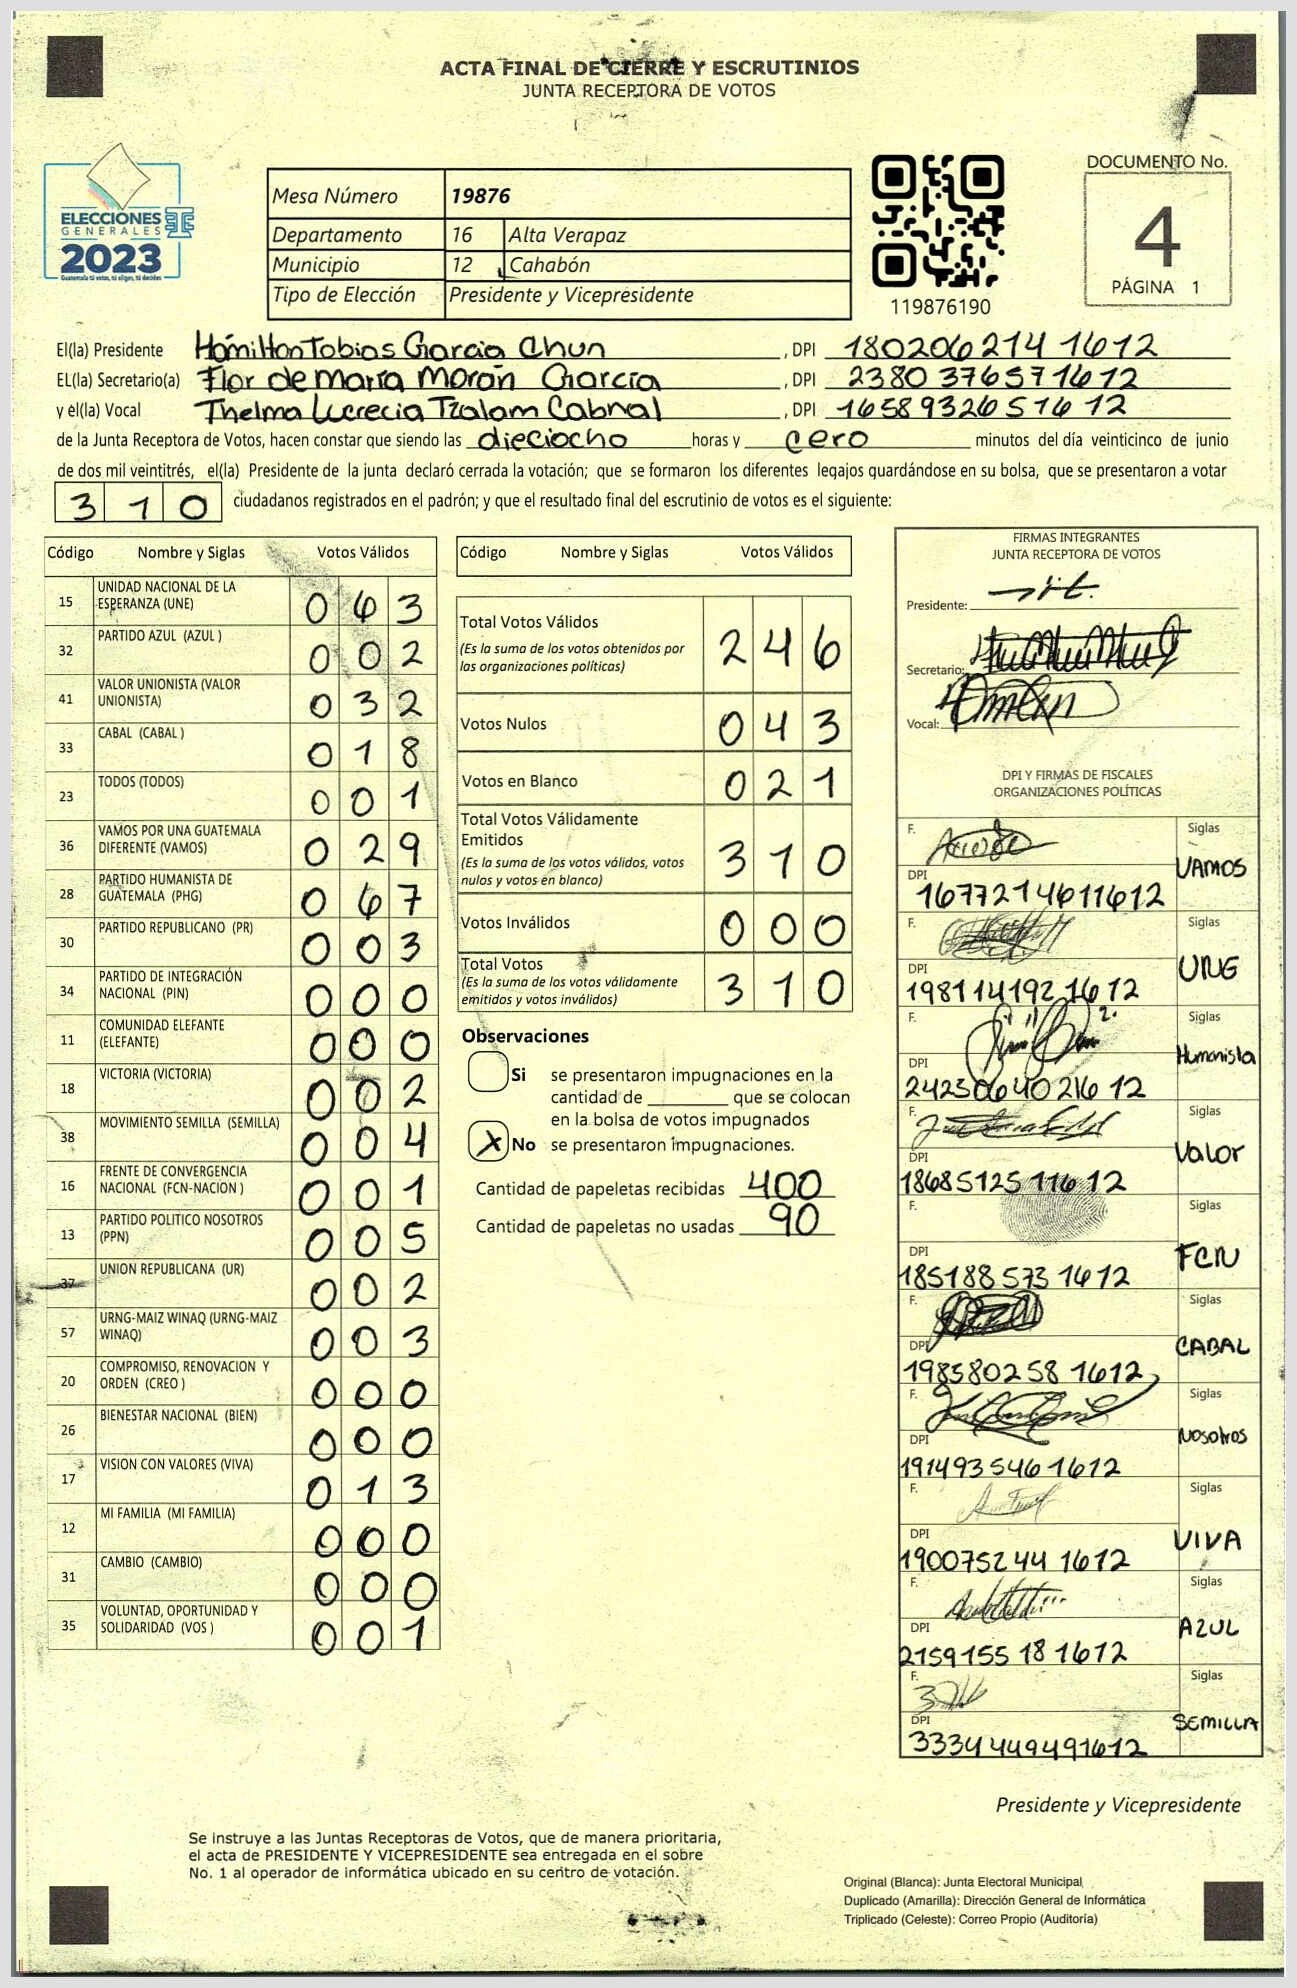 ACTA FINAL DE CIERRE Y ESCRUTINIOS
JUNTA RECEPTORA DE VOTOS
ELECCIONES
GENERALES
2023
Guatemala tú votas, tú eliges, tú decides
Mesa Número 19876
Departamento 16 Alta Verapaz
Municipio 12 Cahabón
Tipo de Elección Presidente y Vicepresidente
119876190
DOCUMENTO No.
4
PÁGINA 1
El(la) Presidente Hamilton Tobias Garcia Chun , DPI 180206214 1612
EL(la) Secretario(a) Flor de María Morán García , DPI 2380 37657 1612
y él(la) Vocal Thelma Lucrecia Tzalam Cabnal , DPI 165893265 1612
de la Junta Receptora de Votos, hacen constar que siendo las dieciocho horas y cero minutos del día veinticinco de junio
de dos mil veintitrés, el(la) Presidente de la junta declaró cerrada la votación; que se formaron los diferentes legajos guardándose en su bolsa, que se presentaron a votar
310 ciudadanos registrados en el padrón; y que el resultado final del escrutinio de votos es el siguiente:
Código Nombre y Siglas Votos Válidos
15 UNIDAD NACIONAL DE LA ESPERANZA (UNE) 063
32 PARTIDO AZUL (AZUL ) 002
41 VALOR UNIONISTA (VALOR UNIONISTA) 032
33 CABAL (CABAL ) 018
23 TODOS (TODOS) 001
36 VAMOS POR UNA GUATEMALA DIFERENTE (VAMOS) 029
28 PARTIDO HUMANISTA DE GUATEMALA (PHG) 067
30 PARTIDO REPUBLICANO (PR) 003
34 PARTIDO DE INTEGRACIÓN NACIONAL (PIN) 000
11 COMUNIDAD ELEFANTE (ELEFANTE) 000
18 VICTORIA (VICTORIA) 002
38 MOVIMIENTO SEMILLA (SEMILLA) 004
16 FRENTE DE CONVERGENCIA NACIONAL (FCN-NACION ) 001
13 PARTIDO POLITICO NOSOTROS (PPN) 005
37 UNION REPUBLICANA (UR) 002
57 URNG-MAIZ WINAQ (URNG-MAIZ WINAQ) 003
20 COMPROMISO, RENOVACION Y ORDEN (CREO ) 000
26 BIENESTAR NACIONAL (BIEN) 000
17 VISION CON VALORES (VIVA) 013
12 MI FAMILIA (MI FAMILIA) 000
31 CAMBIO (CAMBIO) 000
35 VOLUNTAD, OPORTUNIDAD Y SOLIDARIDAD (VOS ) 001
Código Nombre y Siglas Votos Válidos
Total Votos Válidos 246
(Es la suma de los votos obtenidos por
las organizaciones políticas)
Votos Nulos 043
Votos en Blanco 021
Total Votos Válidamente
Emitidos 310
(Es la suma de los votos válidos, votos
nulos y votos en blanco)
Votos Inválidos 000
Total Votos 310
(Es la suma de los votos válidamente
emitidos y votos inválidos)
Observaciones
Si se presentaron impugnaciones en la
cantidad de ________ que se colocan
en la bolsa de votos impugnados
X No se presentaron impugnaciones.
Cantidad de papeletas recibidas 400
Cantidad de papeletas no usadas 90
FIRMAS INTEGRANTES
JUNTA RECEPTORA DE VOTOS
Presidente:
Secretario:
Vocal:
DPI Y FIRMAS DE FISCALES
ORGANIZACIONES POLÍTICAS
F. Siglas VAMOS
DPI 1677214611612
F. Siglas UNE
DPI 198114192 1612
F. Siglas Humanista
DPI 2423064021612
F. Siglas Valor
DPI 186851251 1612
F. Siglas FCN
DPI 185188573 1612
F. Siglas CABAL
DPI 198580258 1612
F. Siglas Nosotros
DPI 191493546 1612
F. Siglas VIVA
DPI 190075244 1612
F. Siglas AZUL
DPI 215915518 1612
F. Siglas SEMILLA
DPI 3334449491612
Presidente y Vicepresidente
Se instruye a las Juntas Receptoras de Votos, que de manera prioritaria,
el acta de PRESIDENTE Y VICEPRESIDENTE sea entregada en el sobre
No. 1 al operador de informática ubicado en su centro de votación.
Original (Blanca): Junta Electoral Municipal
Duplicado (Amarilla): Dirección General de Informática
Triplicado (Celeste): Correo Propio (Auditoría)